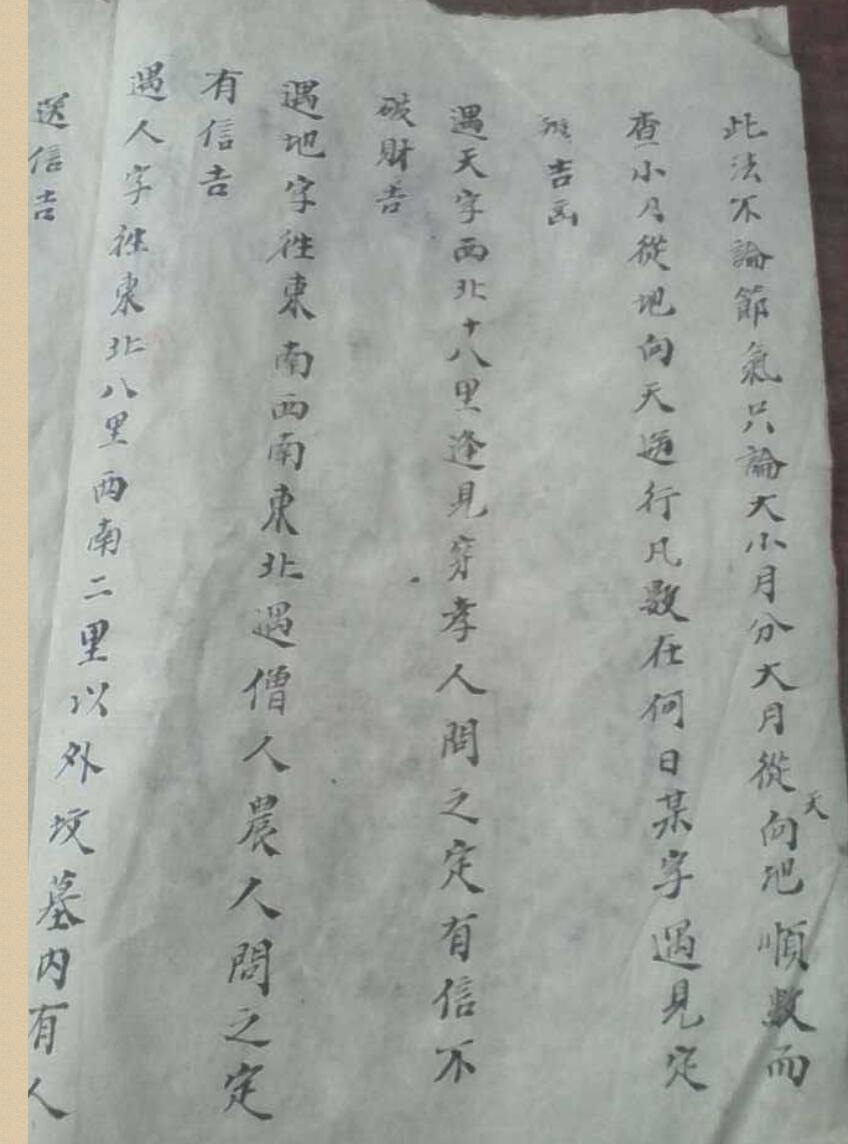 此法不論節氣只論大小月分大月從天向地順數而
查小月從地向天逆行凡數在何日某字遇見定
吉凶
遇天字西北十八里逢見穿孝人問之定有信不
破財吉
遇地字往東南西南東北遇僧人農人問之定
有信吉
遇人字往東北八里西南二里以外坟墓内有人
送信吉